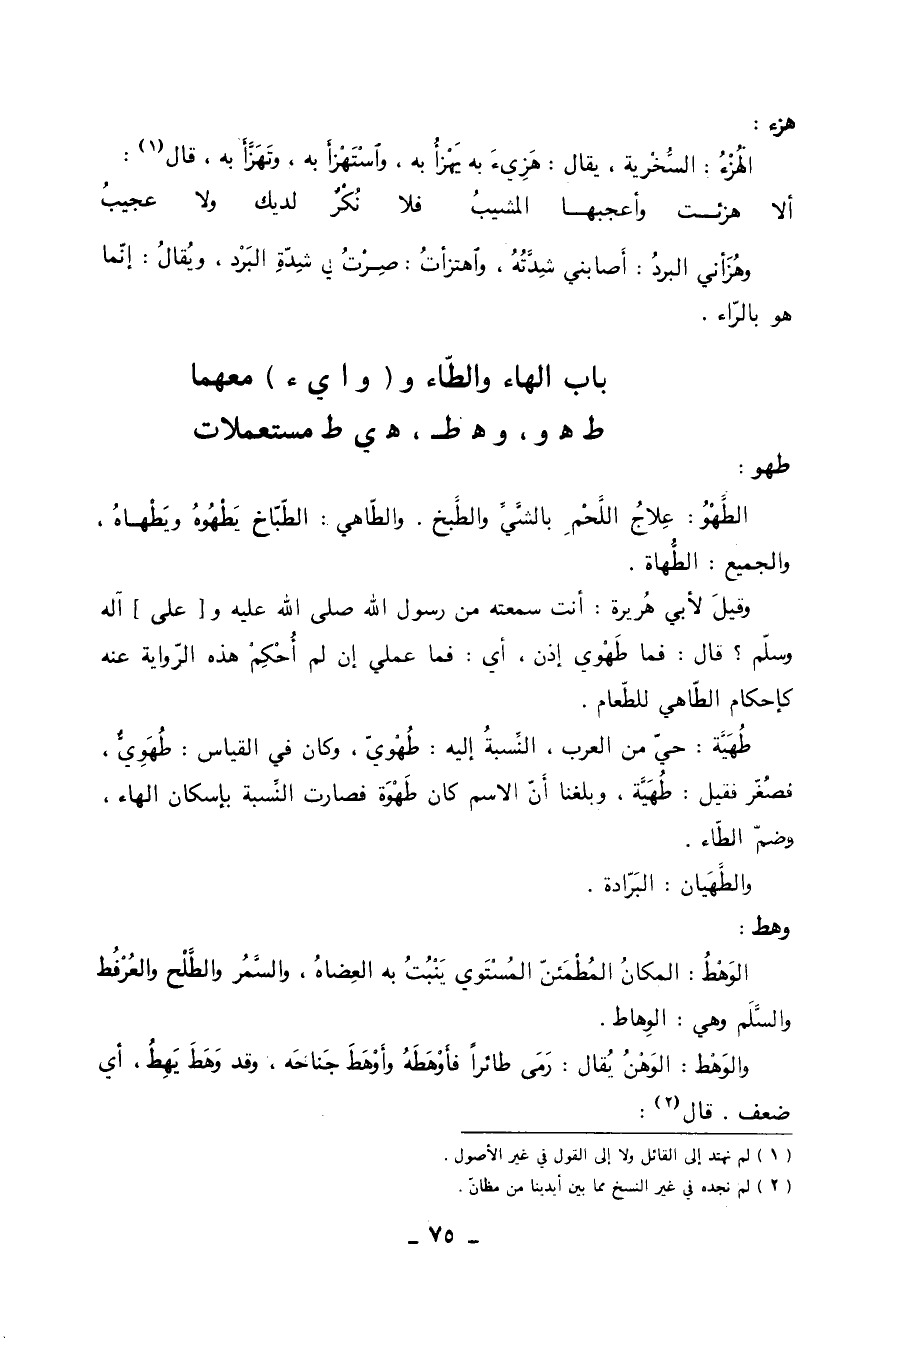 هزء :
الهُزْءُ : السُّخْرية ، يقال : هَزِيءَ به يَهْزأُ به ، وٱسْتَهْزأَ به ، وتَهَزَّأَ به ، قال(١) :
ألا هزئـــت وأعجبهـــا المشيبُ فلا نُكْرٌ لديك ولا عجيبُ
وهُزَأني البردُ : أصابني شِدَّتُهُ ، وٱهتزأتُ : صِرْتُ في شِدّةِ البَرْد ، ويُقالُ : إنّما
هو بالرّاء .
باب الهاء والطّاء و ( و ا ي ء ) معهما
ط ه و ، و ه ط ، ه ي ط مستعملات
طهو :
الطَّهْوُ : عِلاجُ اللَّحْمِ بالشَّيِّ والطَّبخ . والطّاهي : الطّبّاخ يَطْهُوهُ ويَطْهـاهُ ،
والجميع : الطُّهاة .
وقيلَ لأبي هُريرة : أنت سمعته من رسول الله صلى الله عليه و [ على ] آله
وسلّم ؟ قال : فما طَهْوي إذن ، أي : فما عملي إن لم أُحْكِمْ هذه الرّواية عنه
كإحكام الطّاهي للطّعام .
طُهَيَّة : حيّ من العرب ، النِّسبةُ إليه : طُهْويّ ، وكان في القياس : طُهَوِيٌّ ،
فصُغّر فقيل : طُهَيَّة ، وبلغنا أنّ الاسم كان طَهْوَة فصارت النِّسبة بإسكان الهاء ،
وضمّ الطّاء .
والطَّهَيان : البَرّادة .
وهط :
الوَهْطُ : المكانُ المُطْمَئنّ المُسْتَوي يَنْبُتُ به العِضاهُ ، والسَّمُر والطَّلْح والعُرْفُط
والسَّلَم وهي : الوِهاط .
والوَهْط : الوَهْنُ يُقال : رَمَى طائراً فأَوْهَطَهُ وأَوْهَطَ جَناحَه ، وقد وَهَطَ يَهِطُ ، أي
ضعف . قال(٢) :
( ١ ) لم نهتد إلى القائل ولا إلى القول في غير الأصول .
( ٢ ) لم نجده في غير النسخ مما بين أيدينا من مظانّ .
ـ ٧٥ ـ